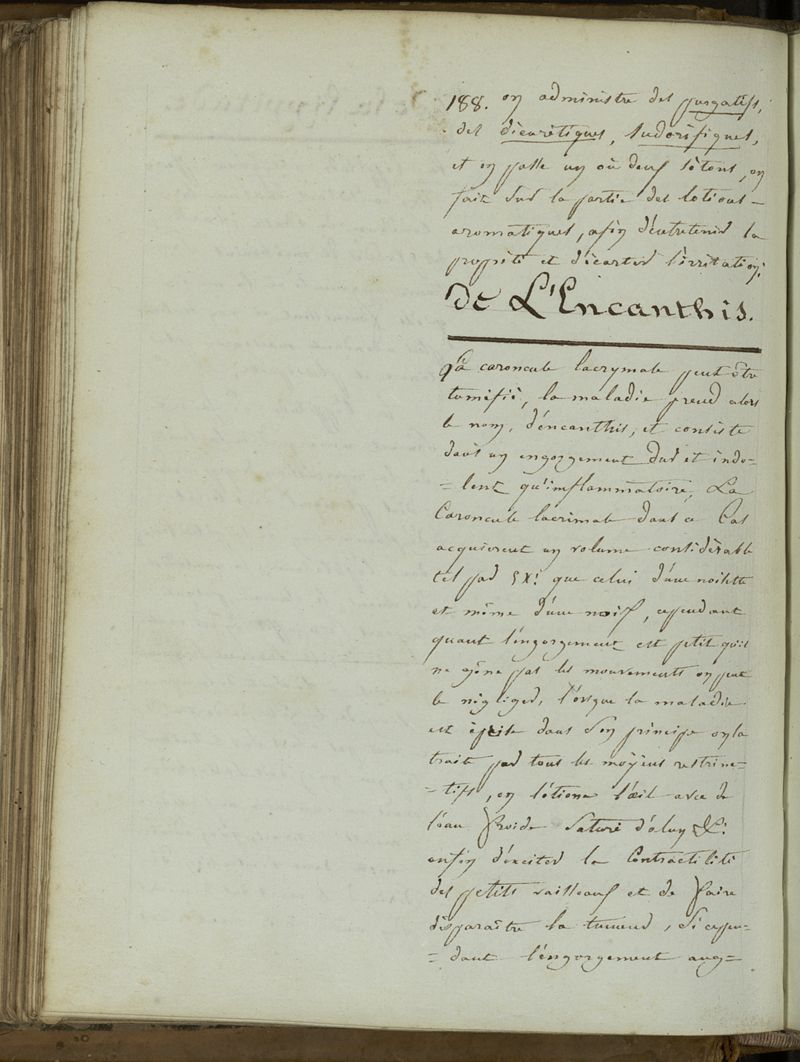 188. on administre des purgatifs,
des diurétiques, sudorifiques,
et on passe un où deux sétons, on
fait sur la partie des lotions
aromatiques, afin d'entretenir la
propreté et d'écarter l'irritation.
de L'Encanthis.
La caroncule lacrymale peut être
tumifié, la maladie prend alors
le nom, d'éncanthis, et consiste
dans un engorgement dur et indo-
=lent qu'imflammatoire, La
Caroncule lacrimale dans ce Cas
acquierent un volume considérable
tel par EX: que celui d'une noisette
et même d'une noix, cependant
quant l'engorgement est petit qu'il
ne gêne pas les mouvements on peut
le négliger, l'orsque la maladie
est èprise dans son principe on la
traite par tous les moÿens restrinc-
=tifs, on lotione l'œil avec de
l'eau froide Saturé d'alun &c:
enfin d'exciter la Contractilité
des petits vaisseaux et de faire
disparaître la tumeur, Si cepen-
=dant l'éngorgement aug=